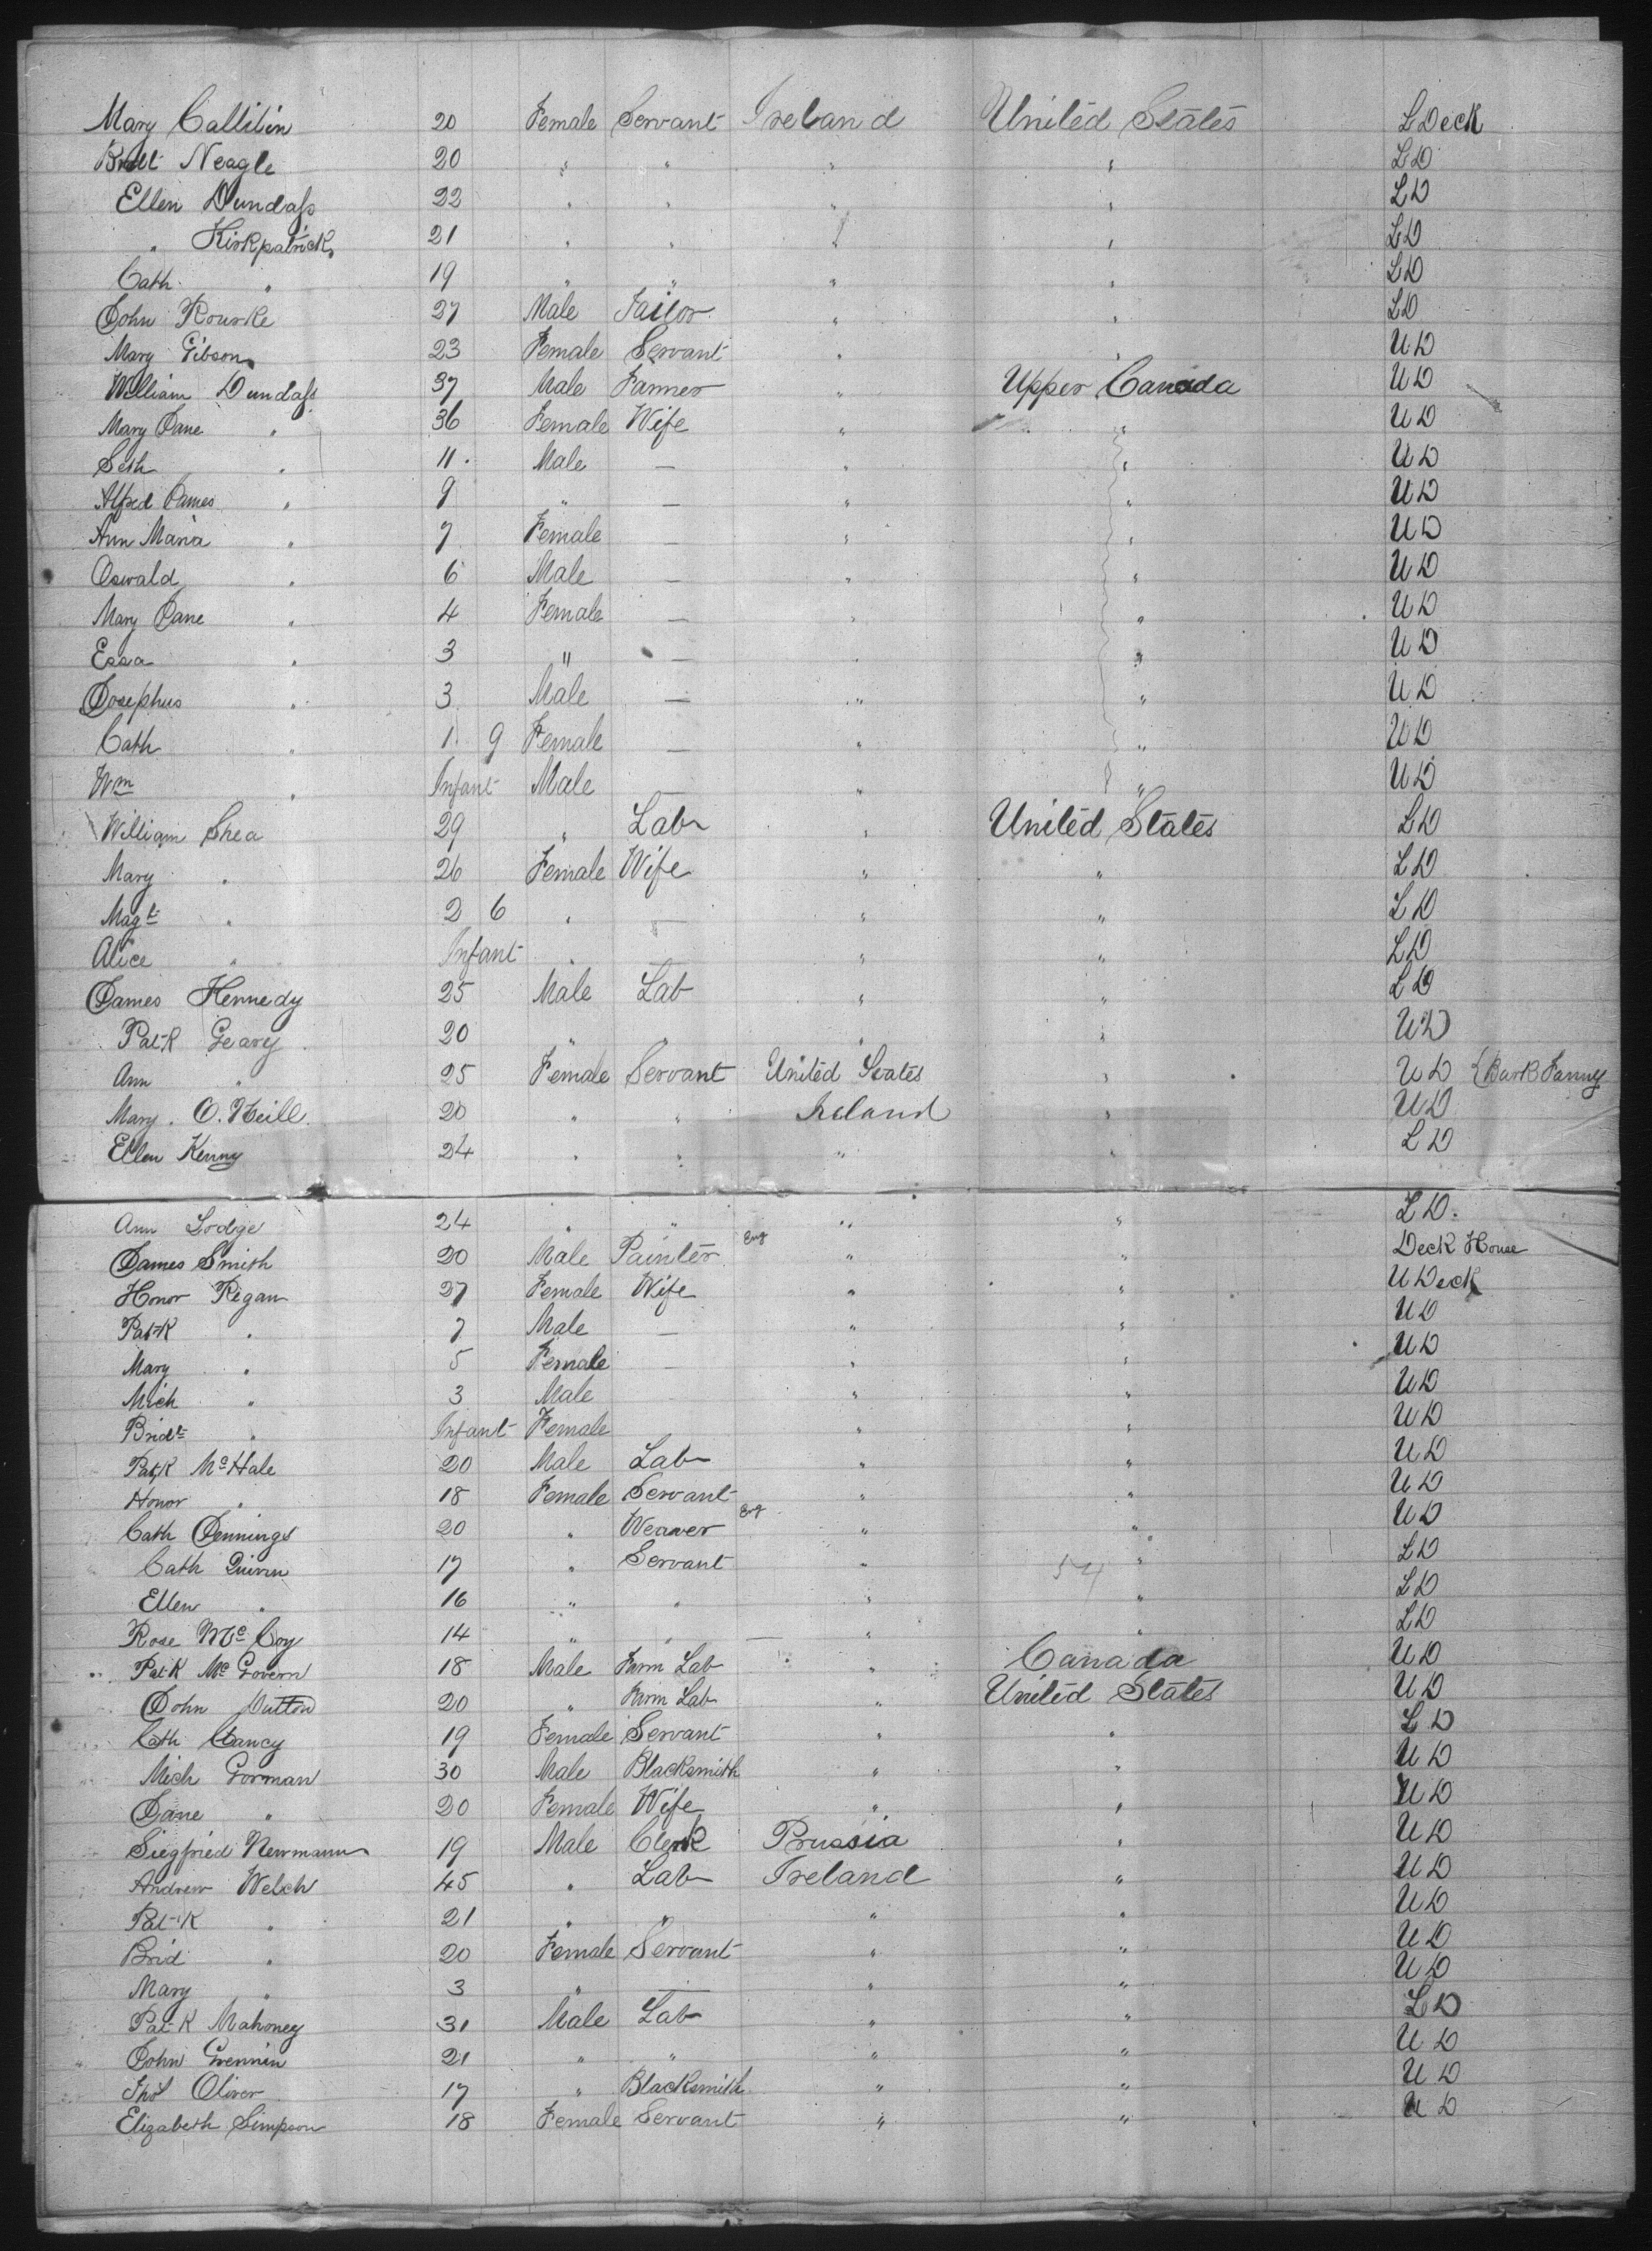 Mary Callilin 20 Female Servant Ireland United States L Deck
Bridt Neagle 20 " " " " L D
Ellen Dundass 22 " " " " L D
" Kirkpatrick 21 " " " " L D
Cath " 19 " " " " L D
John Rourke 27 Male Tailor " " L D
Mary Gibson 23 Female Servant " " U D
William Dundass 37 Male Farmer " Upper Canada U D
Mary Jane " 36 Female Wife " " U D
Seth " 11 Male — " " U D
Alfred James " 9 " — " " U D
Ann Maria " 7 Female — " " U D
Oswald " 6 Male — " " U D
Mary Jane " 4 Female — " " U D
Essa " 3 " — " " U D
Josephus " 3 Male — " " U D
Cath " 1 9 Female — " " U D
Wm " Infant Male — " " U D
William Shea 29 " Lab " United States L D
Mary " 26 Female Wife " " L D
Magt " 2 6 " — " " L D
Alice " Infant " — " " L D
James Kennedy 25 Male Lab " " L D
Patk Geary 20 " " " " U D
Ann " 25 Female Servant United States " U D { Bark Fanny
Mary O. Neill 20 " " Ireland " U D
Ellen Kenny 24 " " " " L D
Ann Lodge 24 " " " " L D
James Smith 20 Male Painter Eng " " Deck House
Honor Regan 27 Female Wife " " U Deck
Patk " 7 Male — " " U D
Mary " 5 Female — " " U D
Mich " 3 Male — " " U D
Bridt " Infant Female " " U D
Patk McHale 20 Male Lab " " U D
Honor " 18 Female Servant " " U D
Cath Jennings 20 " Weaver Eng " " U D
Cath Quinn 17 " Servant " " L D
54
Ellen " 16 " " " " L D
Rose McCoy 14 " " — " " L D
Patk McGovern 18 Male Farm Lab " Canada U D
John Dutton 20 " Farm Lab " United States U D
Cath Clancy 19 Female Servant " " L D
Mich Gorman 30 Male Blacksmith " " U D
Jane " 20 Female Wife " " U D
Siegfried Newmann 19 Male Clerk Prussia " U D
Andrew Welch 45 " Lab Ireland " U D
Patk " 21 " " " " U D
Brid " 20 Female Servant " " U D
Mary " 3 " — " " U D
Patk Mahoney 31 Male Lab " " L D
John Grennin 21 " " " " U D
Thos Oliver 17 " Blacksmith " " U D
Elizabeth Simpson 18 Female Servant " " U D